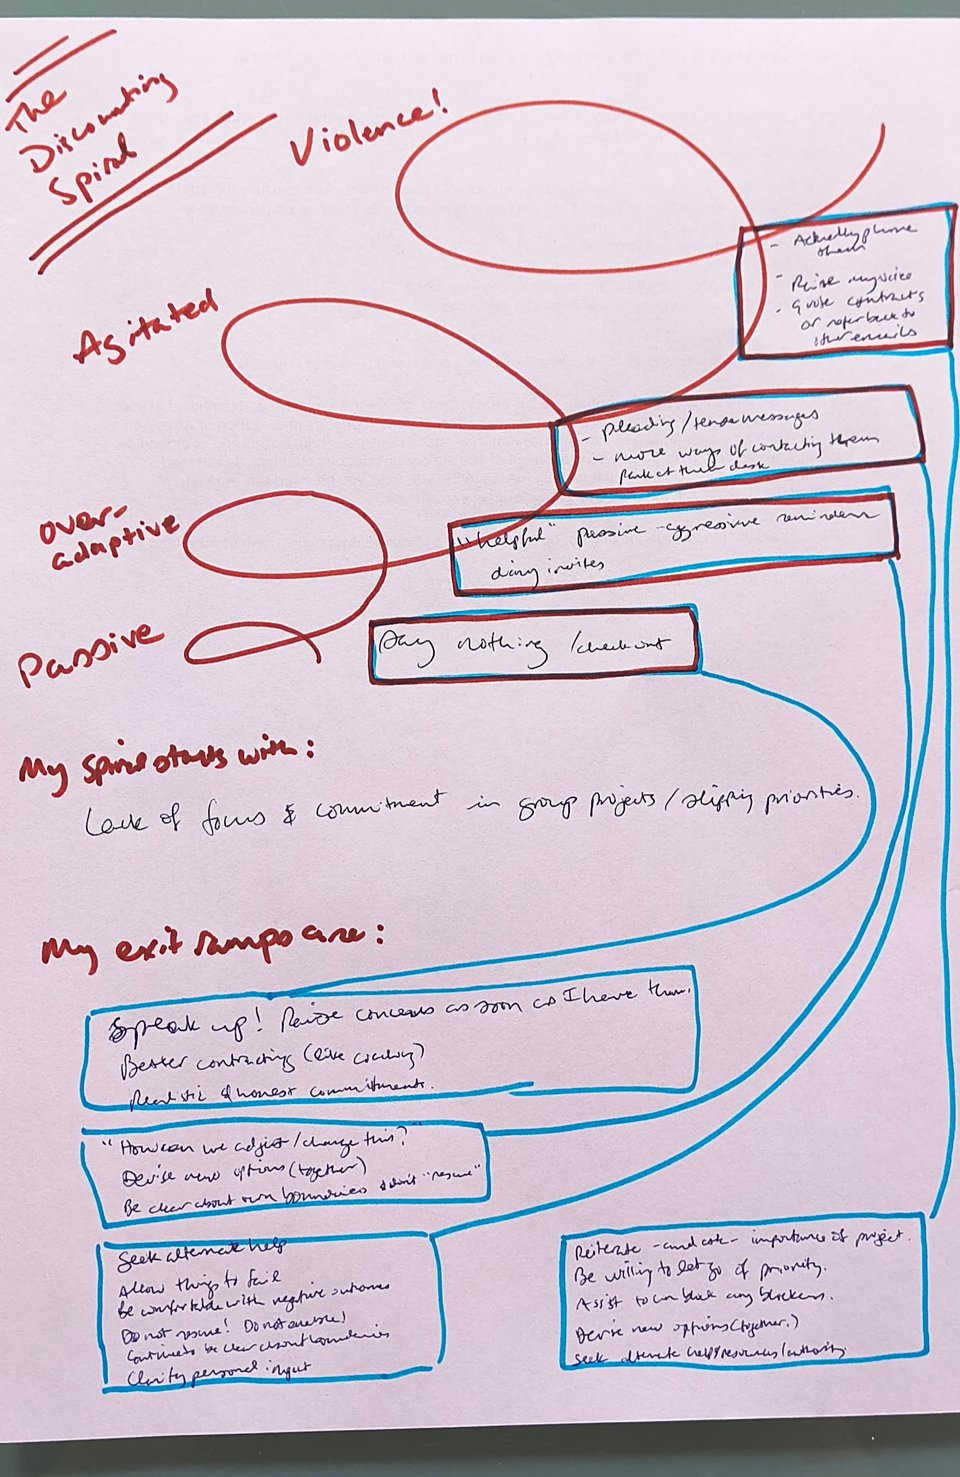 The
Discounting
Spiral
Violence!
- Actually phone
them
- Raise my voice
- Quote contracts
or refer back to
other emails
Agitated
- pleading/tense messages
- more ways of contacting them
Park at their desk
over-
adaptive
"helpful" passive-aggressive reminders
diary invites
Passive
Say nothing /check out
My spiral starts with:
Lack of focus & commitment in group projects/slipping priorities.
My exit ramps are:
Speak up! Raise concerns as soon as I have them.
Better contracting (like coaching)
Realistic & honest commitments.
"How can we adjust/change this?"
Devise new options (together)
Be clear about own boundaries & don't "rescue"
Seek alternate help
Allow things to fail
Be comfortable with negative outcomes
Do not rescue! Do not enable!
Continue to be clear about boundaries
Clarify personal input
Reiterate -and ask- importance of project.
Be willing to let go of priority.
Assist to unblock any blockers.
Devise new options (together.)
Seek alternate help/resources/authority